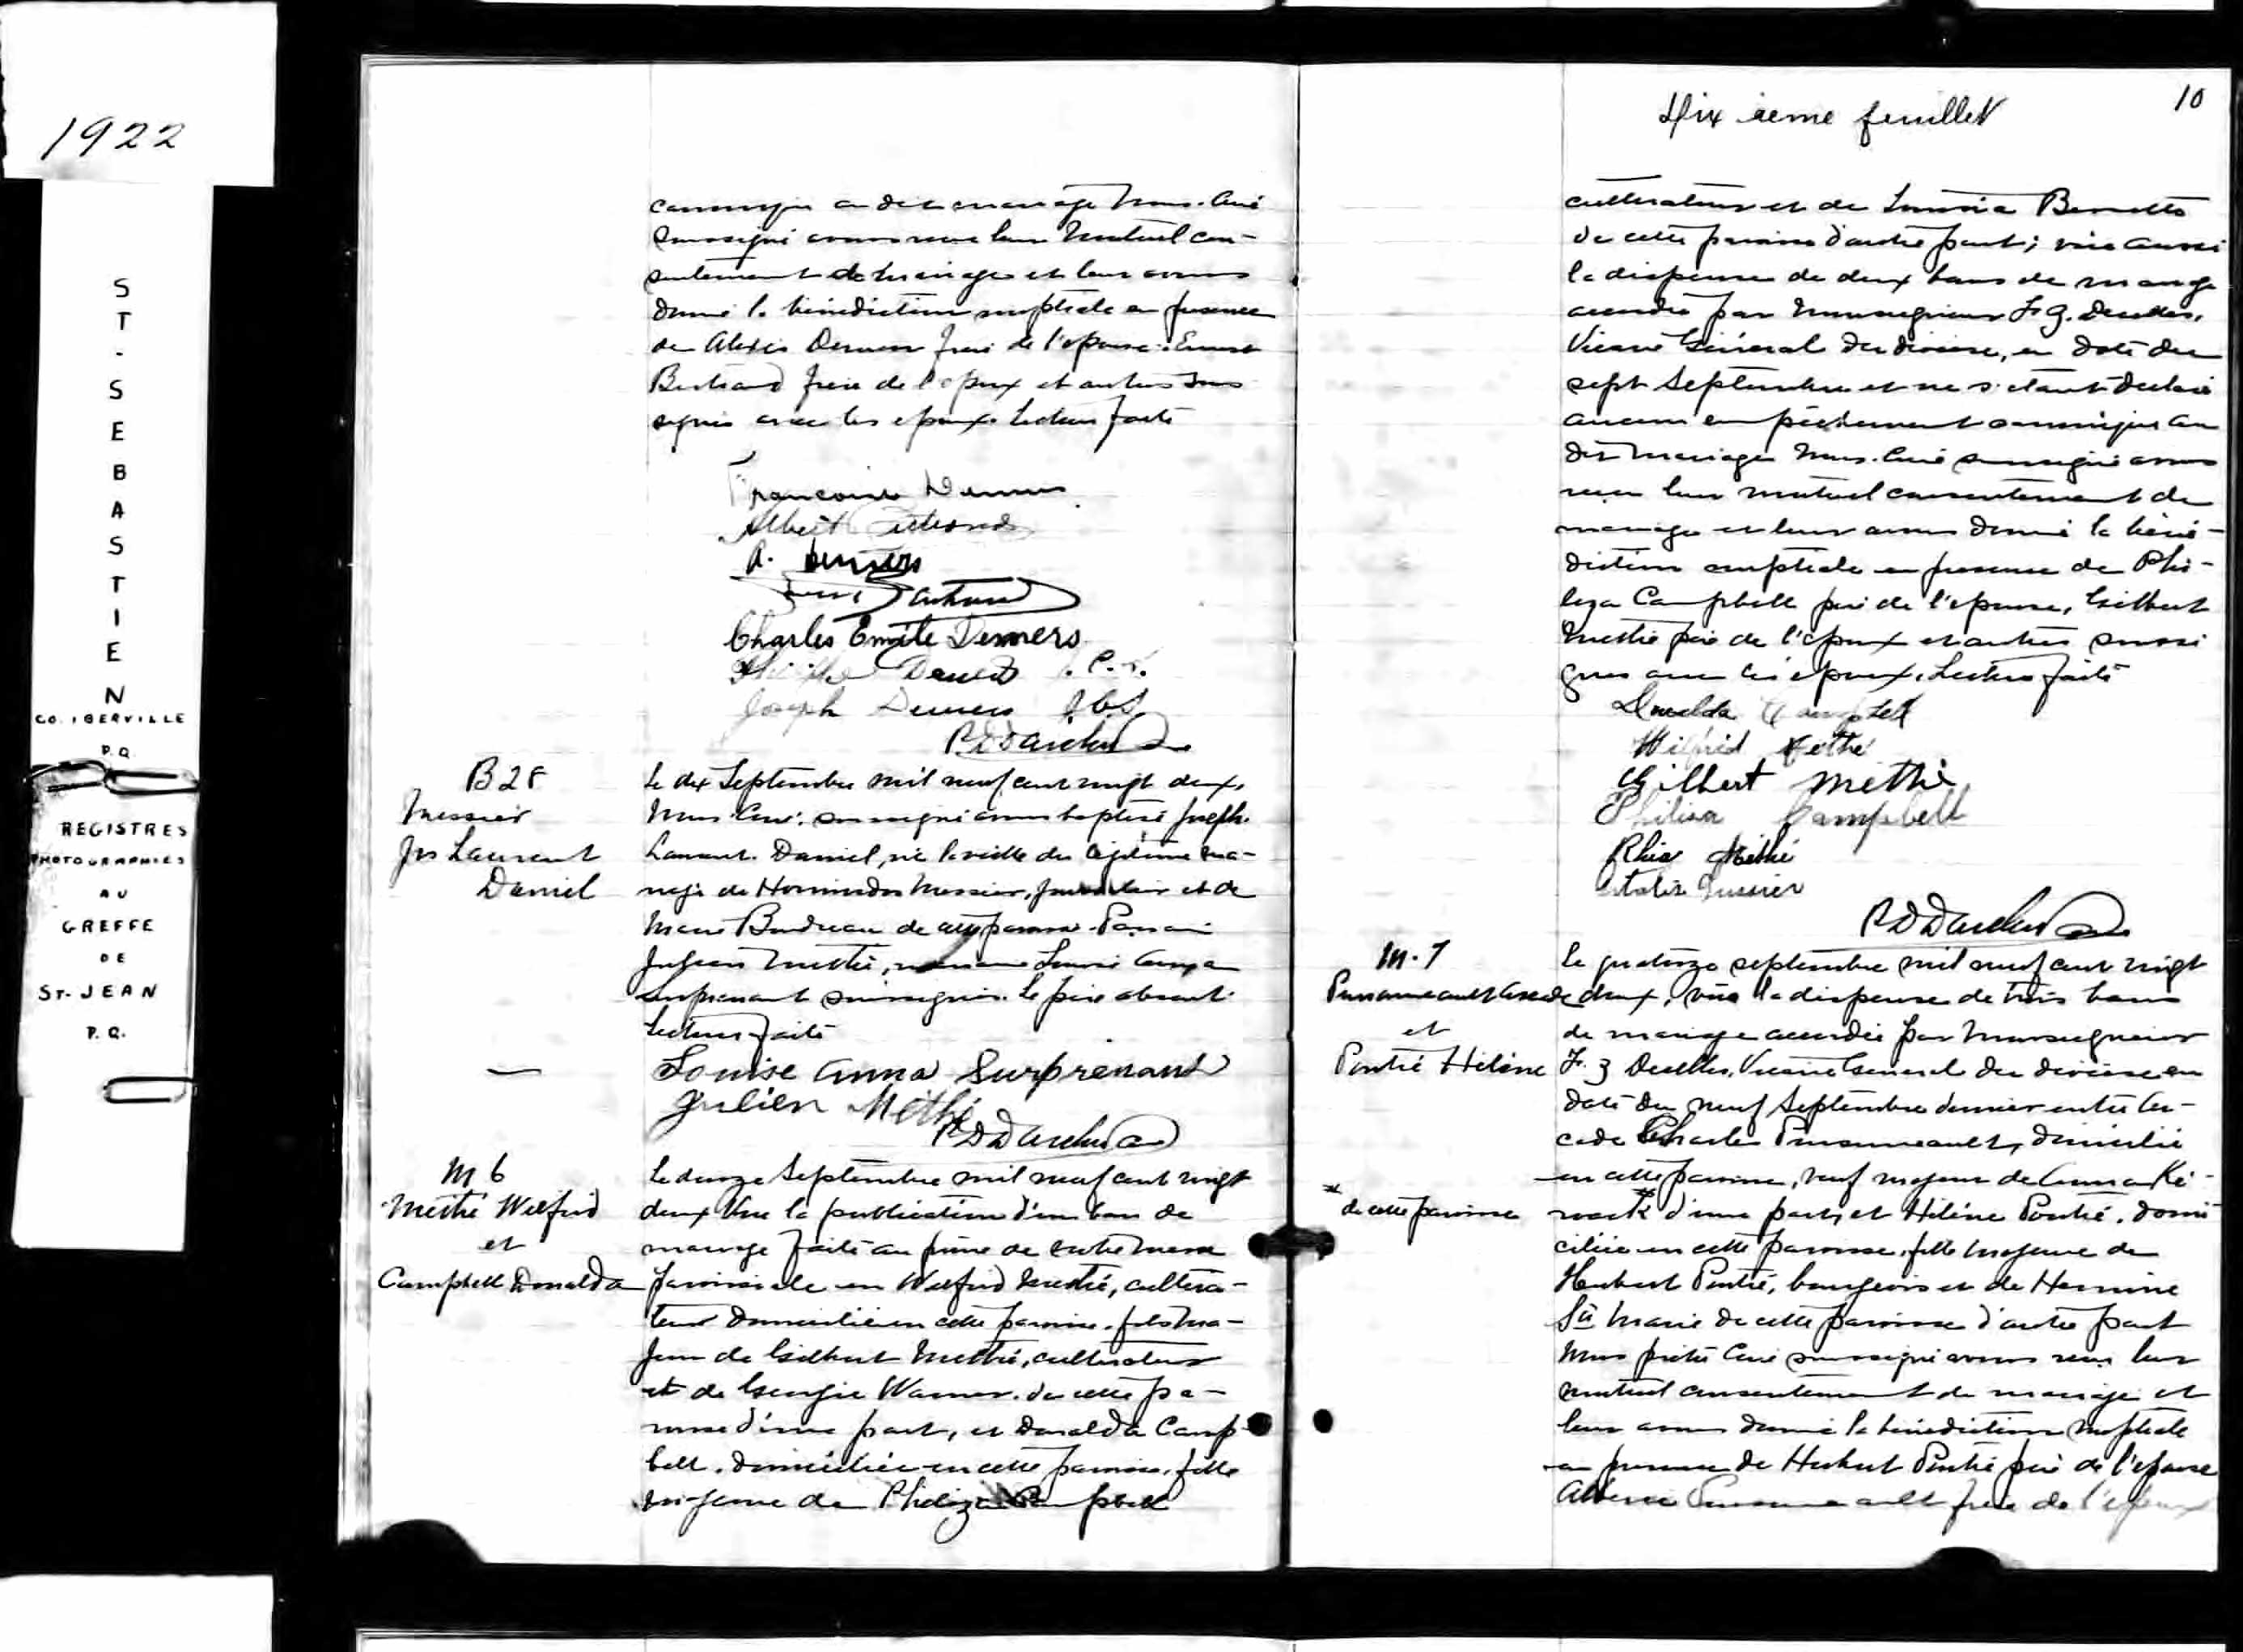 1922
ST-SEBASTIEN
CO. IBERVILLE
P.Q.
REGISTRES
PHOTOGRAPHIES
AU
GREFFE
DE
ST-JEAN
P.Q.
canonique au dit mariage Nous Curé
soussigné avons reçu leur mutuel con-
sentement de mariage et leur avons
donné la bénédiction nuptiale en présence
de Alexis Demers frère de l'épouse, Ernest
Bertrand frère de l'époux et autres sous
signés avec les époux. Lecture faite
Françoise Demers
Albert Bertrand
A. Demers
Bertrand
Charles Emile Demers
Demers
Joseph Demers
B 28
Messier
Jos Laurent
Daniel
Le dix Septembre mil neuf cent vingt deux,
Nous Curé soussigné avons baptisé Joseph
Laurent Daniel, né la veille du légitime ma-
riage de Hormisdas Messier, journalier et de
Marie Boudreau de cette paroisse. Parrain
Julien Methé, marraine Louise Anna
Surprenant soussignés. Le père absent.
Lecture faite
Louise Anna Surprenant
Julien Methé
M 6
Methé Wilfrid
et
Campbell Donalda
Le douze Septembre mil neuf cent vingt
deux Vu la publication d'un ban de
mariage faite au prône de notre messe
paroissiale en Wilfrid Methé, cultiva-
teur domicilié en cette paroisse, fils ma-
jeur de Gilbert Methé, cultivateur
et de Georgie Warner de cette pa-
roisse d'une part, et Donalda Camp-
bell, domiciliée en cette paroisse, fille
mineure de Philiza Campbell
Dixième feuillet
10
cultivateur et de
de cette paroisse d'autre part; vu aussi
la dispense de deux bans de mariage
accordée par Monseigneur F. Z. Decelles,
Vicaire Général du diocèse, en date du
sept Septembre et ne s'étant déclaré
aucun empêchement canonique au
dit mariage Nous Curé soussigné avons
reçu leur mutuel consentement de
mariage et leur avons donné la béné-
diction nuptiale en présence de Phi-
liza Campbell père de l'épouse, Gilbert
Methé père de l'époux et autres soussi
gnés avec les époux. Lecture faite
Donalda Campbell
Wilfrid Methé
Gilbert Methé
Philiza Campbell
Rhéa Methé
Messier
M. 7
et
Poutré Hélène
Le quatorze septembre mil neuf cent vingt
deux, vu la dispense de trois bans
de mariage accordée par Monseigneur
F. Z Decelles, Vicaire Général du diocèse en
date du neuf Septembre dernier entre Ar-
cade Charles Pinsonneault, domicilié
en cette paroisse, veuf majeur de Anna
* de cette paroisse
d'une part, et Hélène Poutré, domi
ciliée en cette paroisse, fille majeure de
Hubert Poutré, bourgeois et de Hermine
Ste Marie de cette paroisse d'autre part
Nous prêtre Curé soussigné avons reçu leur
mutuel consentement de mariage et
leur avons donné la bénédiction nuptiale
en présence de Hubert Poutré père de l'épouse
Pinsonneault frère de l'époux